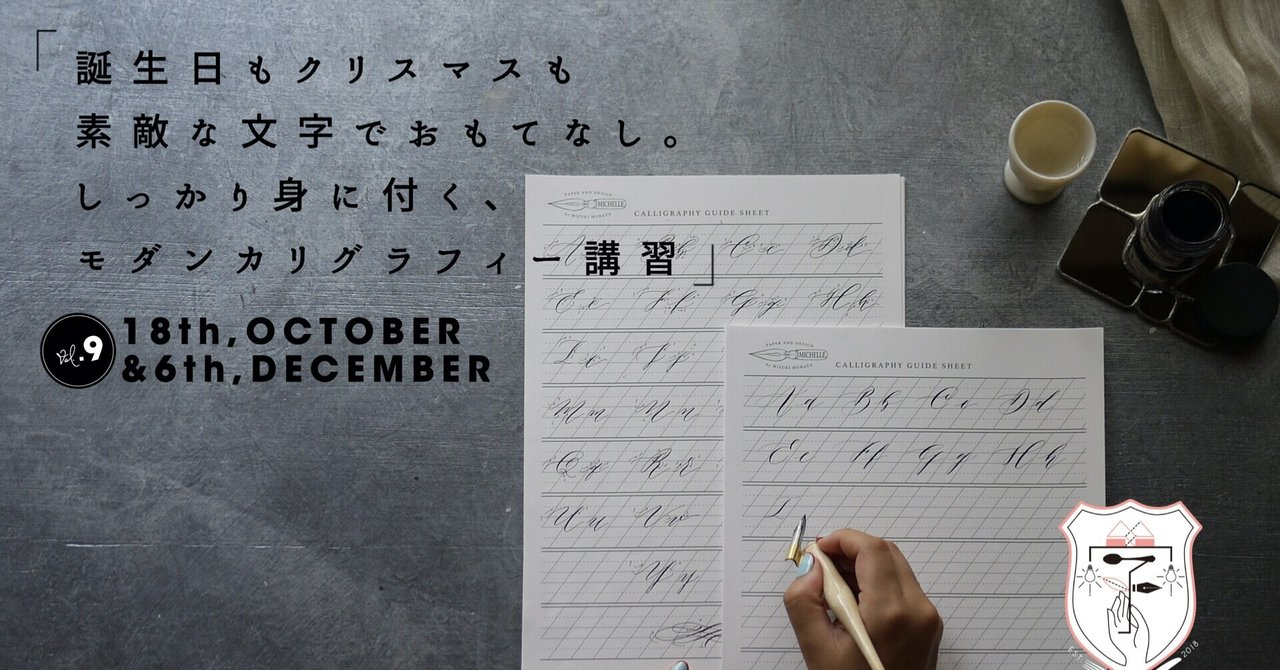 「誕生日もクリスマスも
素敵な文字でおもてなし。
しっかり身に付く、
モダンカリグラフィー講習」
Vol.9
18th,OCTOBER
&6th,DECEMBER
PAPER AND DESIGN
MICHELLE
BY MIZUKI MURATA
CALLIGRAPHY GUIDE SHEET
Aa Bb Cc Dd
Ee Ff Gg Hh
Ii Jj
Mm Nn
Qq Rr
Uu Vv
Yy
PAPER AND DESIGN
MICHELLE
BY MIZUKI MURATA
CALLIGRAPHY GUIDE SHEET
Aa Bb Cc Dd
Ee Ff Gg Hh
I
EST 2018